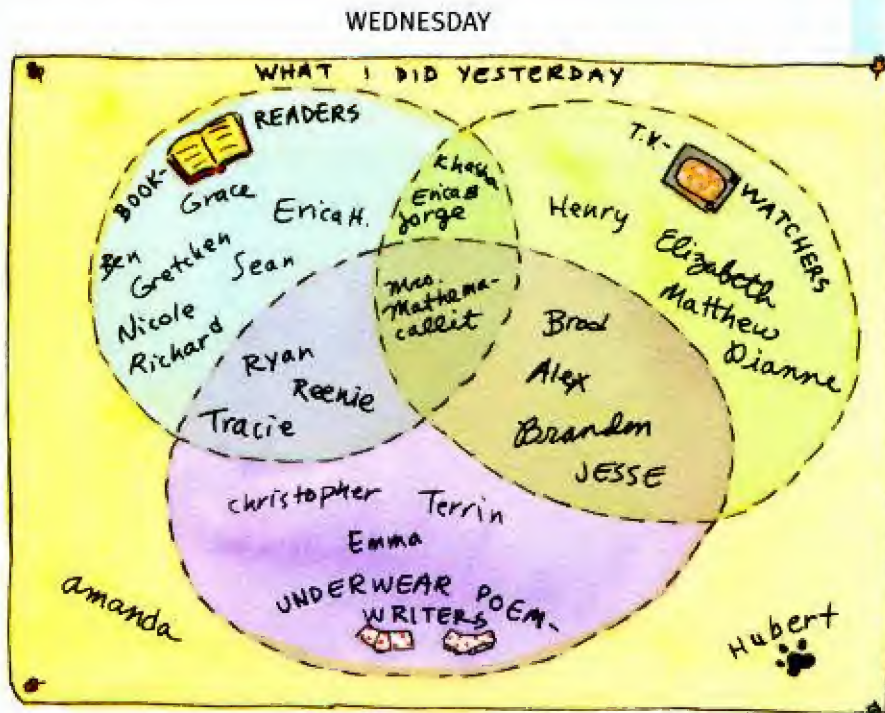 WEDNESDAY
WHAT I DID YESTERDAY
BOOK-READERS
Grace
Erica H.
Ben
Gretchen
Sean
Nicole
Richard
Khasha
Erica B
Jorge
T.V.-WATCHERS
Henry
Elizabeth
Matthew
Dianne
Mrs.
Mathema-
callit
Ryan
Reenie
Tracie
Brad
Alex
Brandon
JESSE
christopher
Terrin
Emma
UNDERWEAR POEM-
WRITERS
amanda
Hubert